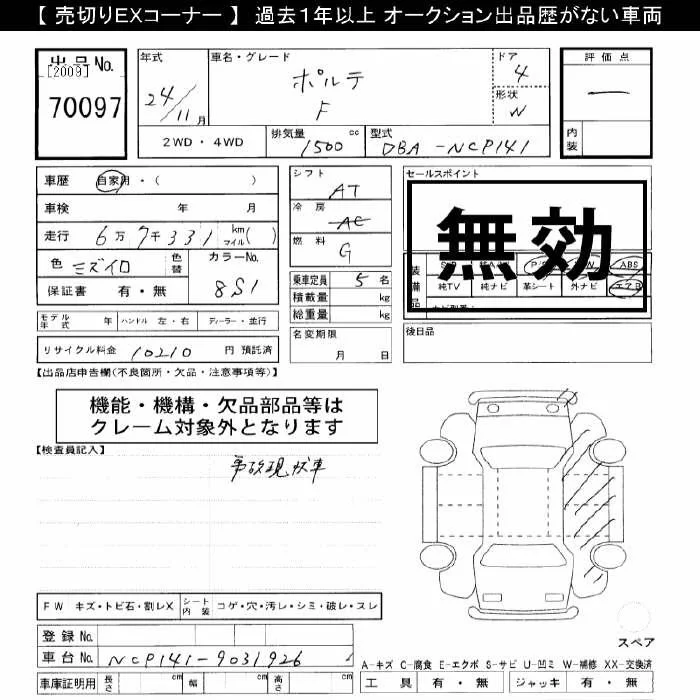 【 売切りEXコーナー 】 過去1年以上 オークション出品歴がない車両
出品 No.
[2009]
70097
年式
24/11月
車名・グレード
ポルテ
F
ドア
4
形状
W
評価点
―
内装
2WD・4WD
排気量
1500 cc
型式
DBA-NCP141
車歴 自家用・( )
車検 年 月
走行 6万7千331 km マイル( )
色 ミズイロ 色替
カラーNo.
8S1
保証書 有・無
シフト
AT
冷房
AC
燃料
G
セールスポイント
無効
P/S
ABS
純TV 純ナビ 革シート 外ナビ エアB
乗車定員 5 名
積載量 kg
総重量 kg
モデル年式 年 ハンドル 左・右 ディーラー・並行
名変期限
月 日
後日品
リサイクル料金 10210 円 預託済
【出品店申告欄(不良箇所・欠品・注意事項等)】
機能・機構・欠品部品等は
クレーム対象外となります
【検査員記入】
事故現状車
FW キズ・トビ石・割レX シート内装 コゲ・穴・汚レ・シミ・破レ・スレ
登録 No.
車台 No. NCP141-9031926
車庫証明用 長さ cm 幅 cm 高さ cm
スペア
A-キズ C-腐食 E-エクボ S-サビ U-凹ミ W-補修 XX-交換済
工具 有・無 ジャッキ 有・無